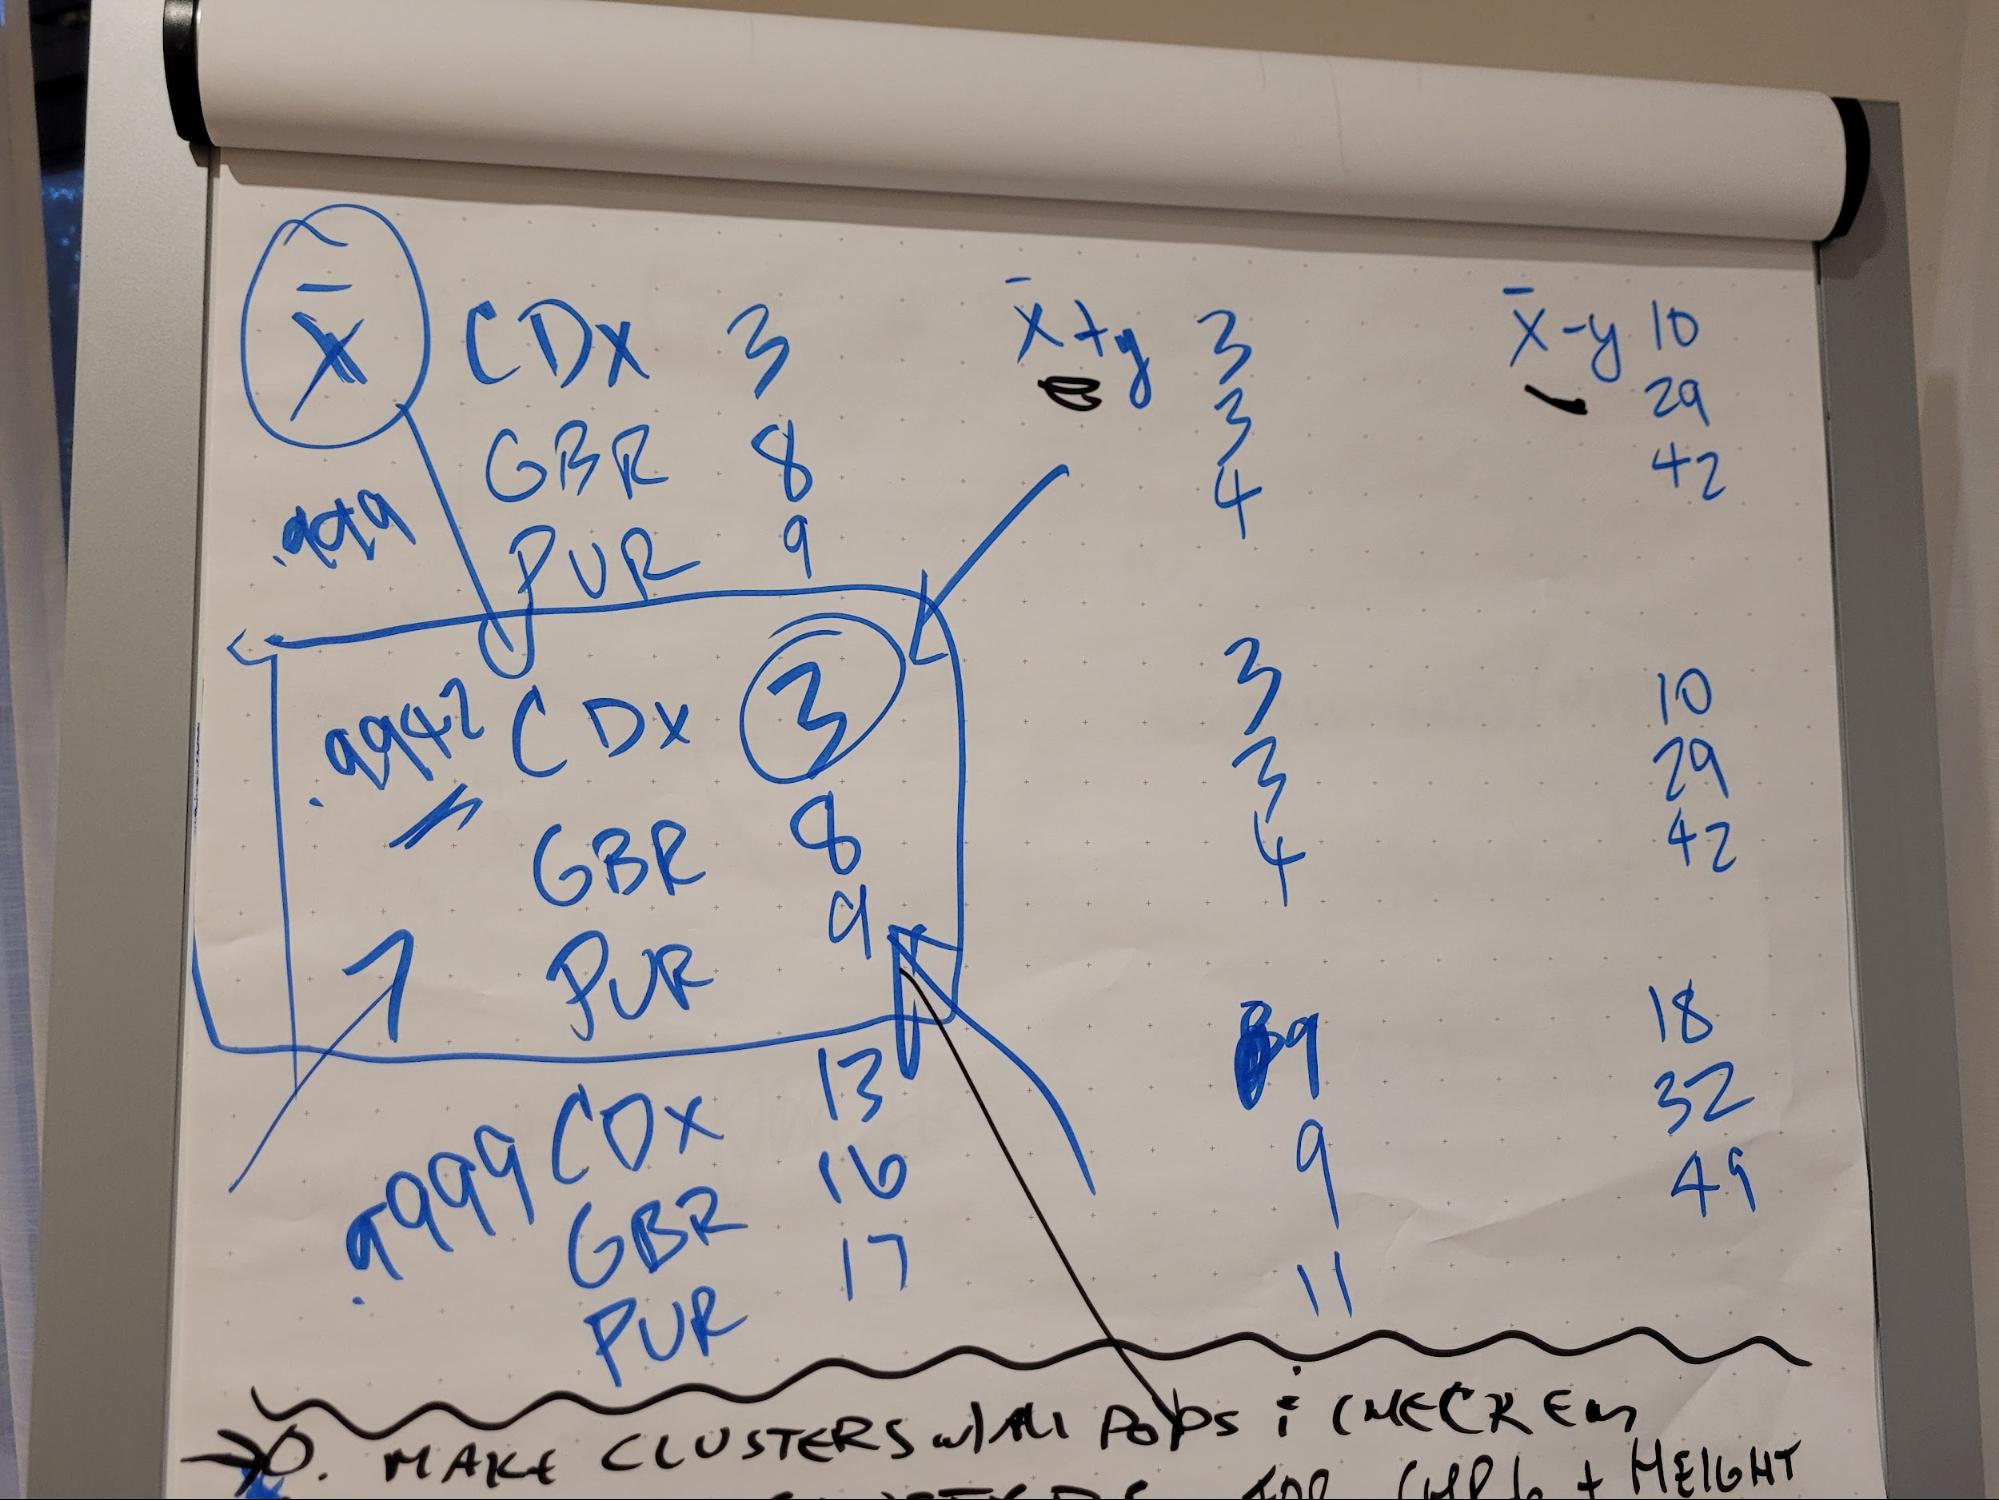 x̄ CDX 3 x̄+y 3 x̄-y 10
GBR 8 3 29
.999 PUR 9 4 42
.9942 CDX 3 3 10
GBR 8 3 29
PUR 9 4 42
.9999 CDX 13 9 18
GBR 16 9 32
PUR 17 11 49
→0. MAKE CLUSTERS w/ All POPS & CHECK Em
FOR CHR 6 + HEIGHT